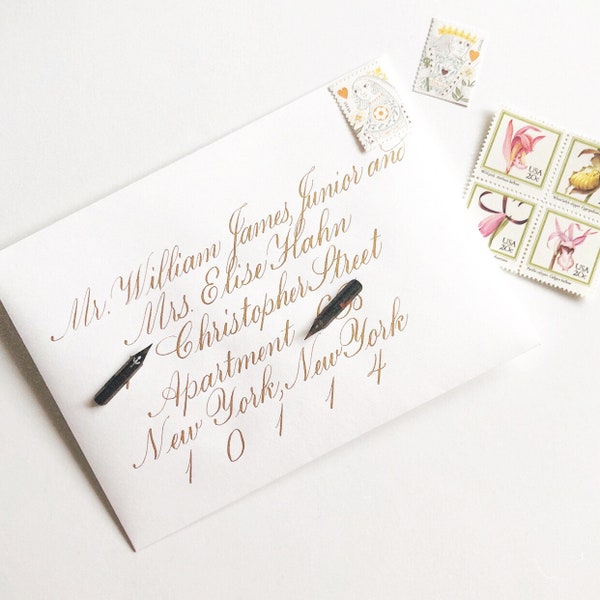 Mr. William James, Junior and
Mrs. Elise Hahn
Christopher Street
Apartment
New York, New York
1 0 1 1 4
USA
20c
USA
20c
USA
20c